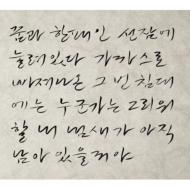 꿈과 한때인 선잠에
눌려있다 가까스로
빠져나온 그 빈 침대
에는 누군가는 그리워
할 내 냄새가 아직
남아 있을거야